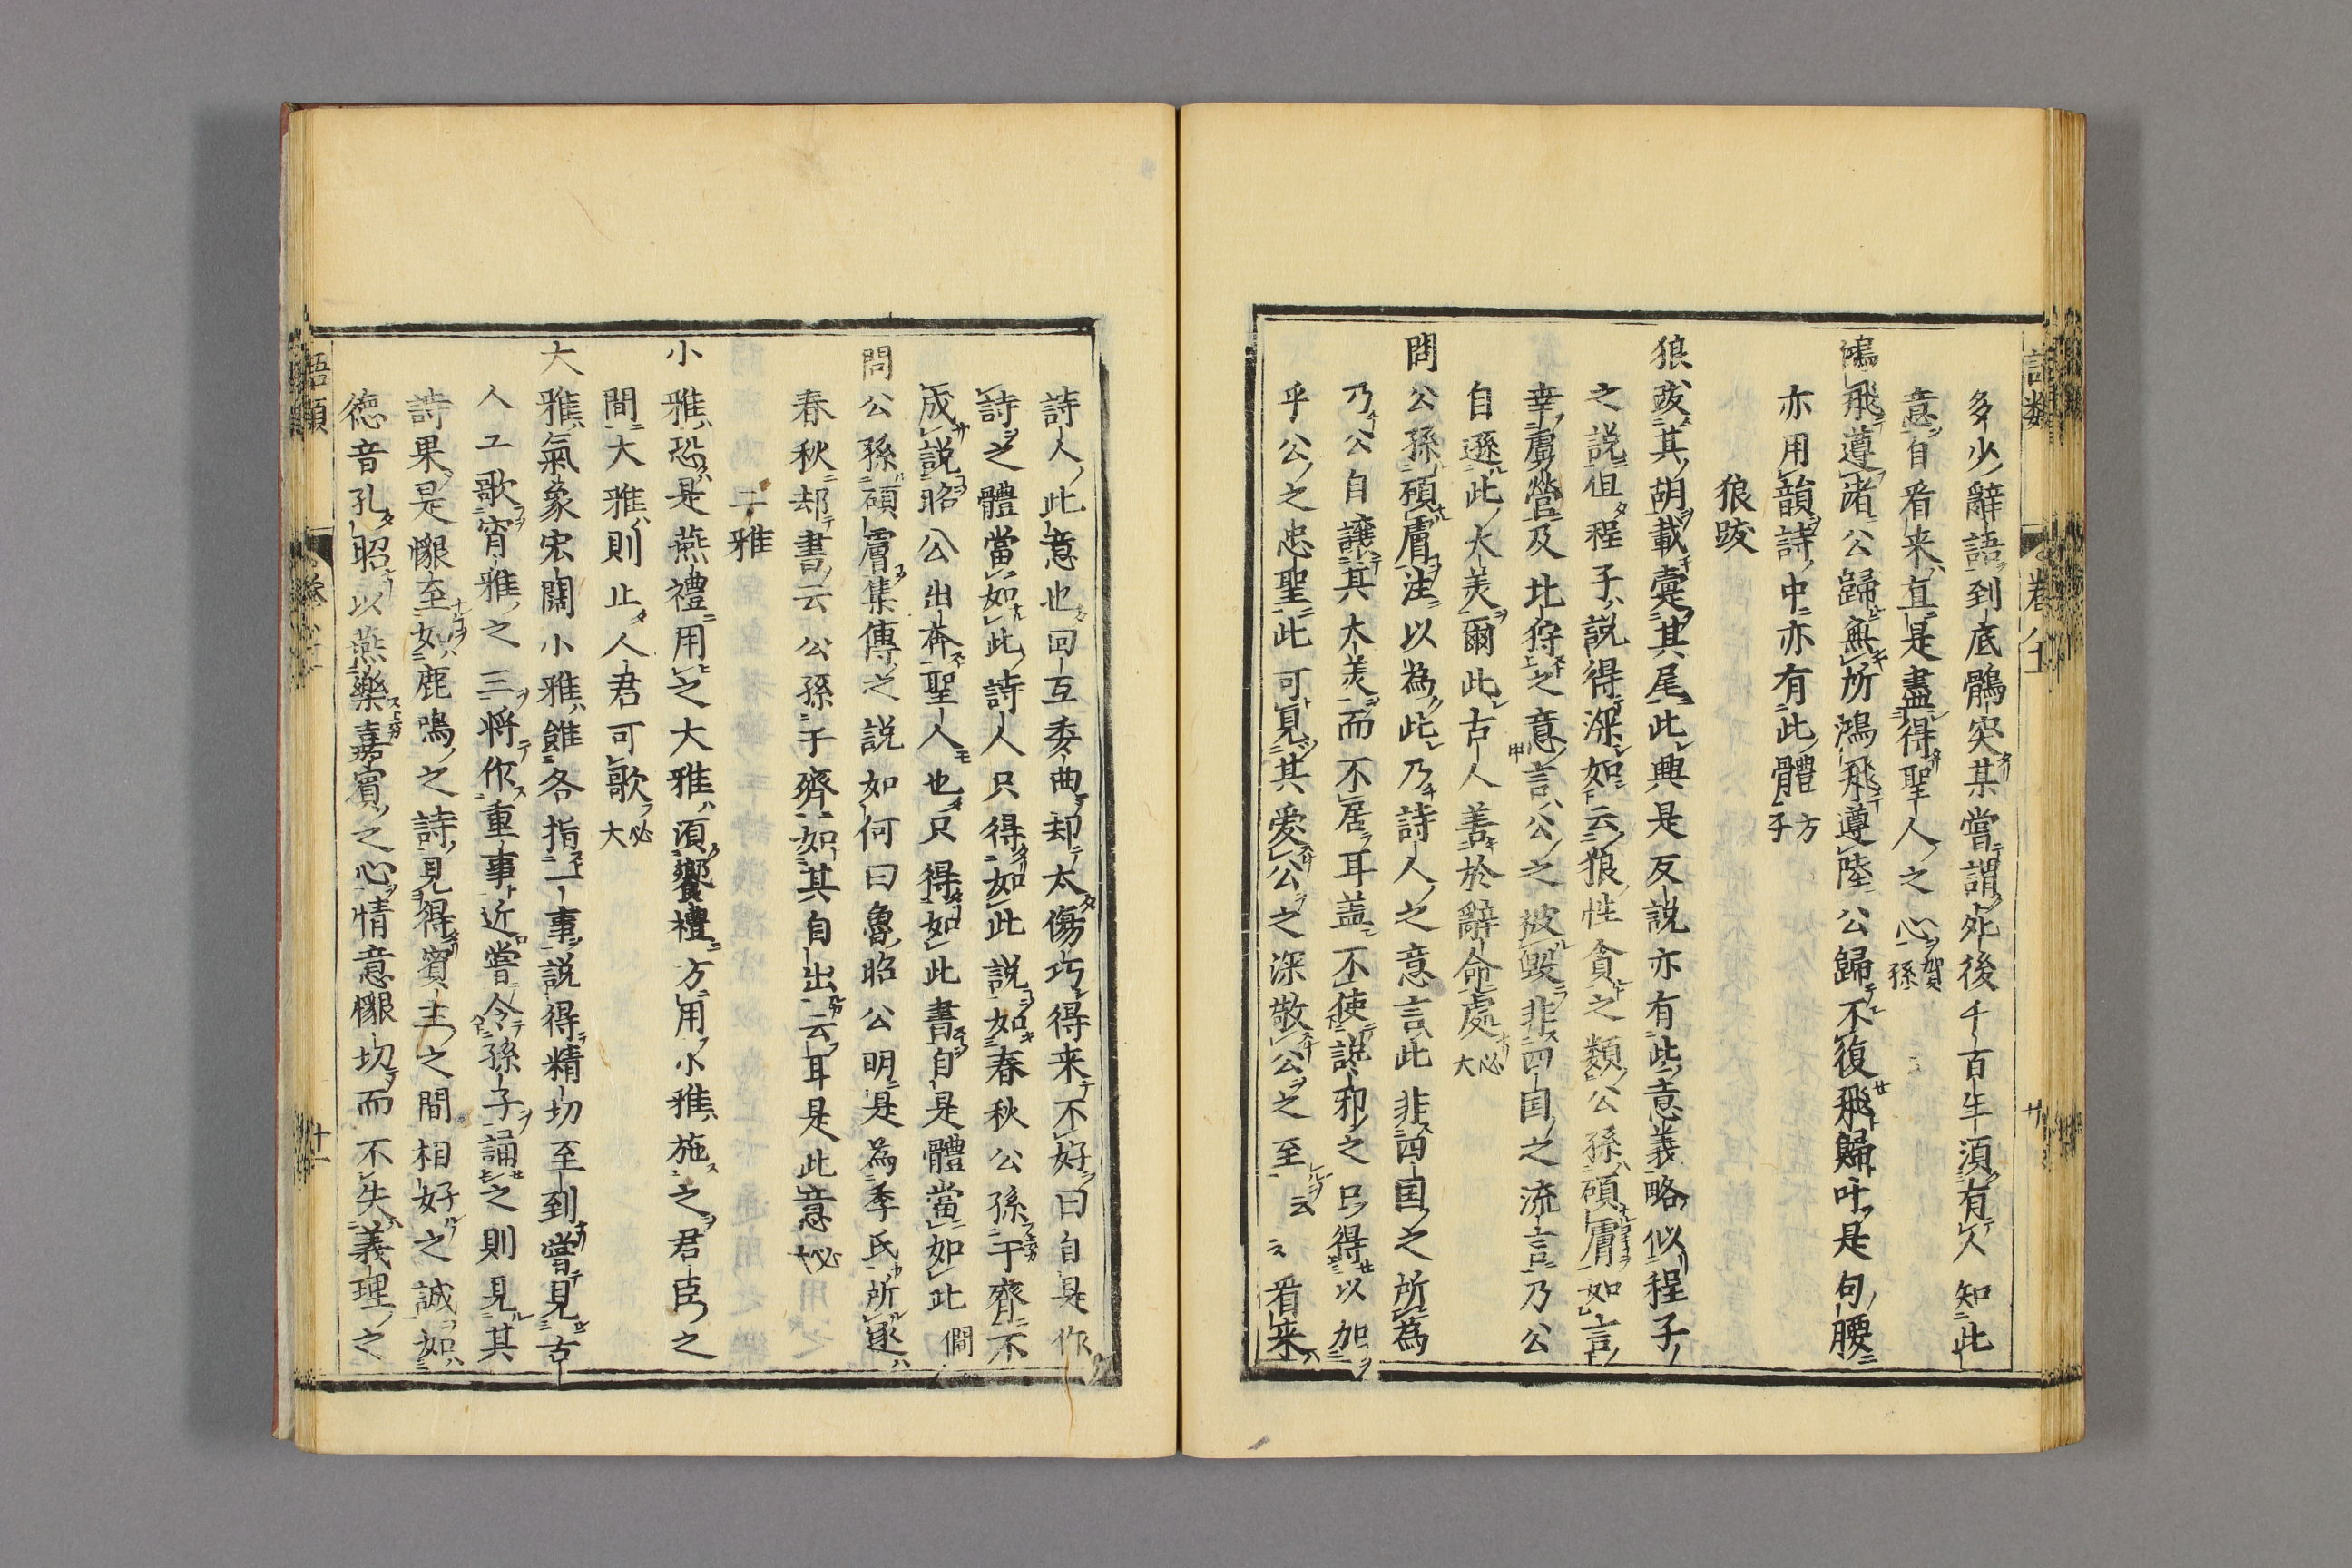 多少辭語到底鶻突某嘗謂死後千百年須有人知此
意自看来直是盡得聖人之心賀孫
鴻飛遵渚公歸無所鴻飛遵陸公歸不復飛歸叶是句腰
亦用韻詩中亦有此體方子
狼跋
狼跋其胡載疐其尾此興是反說亦有些意義略似程子
之說但程子說得深如云狼性貪之類公孫碩膚如言
幸虜營及北狩之意言公之被毀非四国之流言乃公
自遜此大美爾此古人善於辭命處必大
問公孫碩膚注以為此乃詩人之意言此非四国之所為
乃公自讓其大美而不居耳盖不使讒邪之口得以加
乎公之忠聖此可見其愛公之深敬公之至云云看来
詩人此意也回互委曲却太傷巧得来不好曰自是作
詩之體當如此詩人只得如此說如春秋公孫于齊不
成說昭公出奔聖人也只得如此書自是體當如此僩
問公孫碩膚集傳之說如何曰魯昭公明是為季氏所逐
春秋却書云公孫于齊如其自出云耳是此意必大
二雅
小雅恐是燕禮用之大雅須饗禮方用小雅施之君臣之
間大雅則止人君可歌必大
大雅氣象宏闊小雅雖各指一事說得精切至到嘗見古
人工歌宵雅之三將作重事近嘗令孫子誦之則見其
詩果是懇至如鹿鳴之詩見得賓主之間相好之誠如
德音孔昭以燕樂嘉賓之心情意懇切而不失義理之
語類
卷八十一
廿
語類
廿一